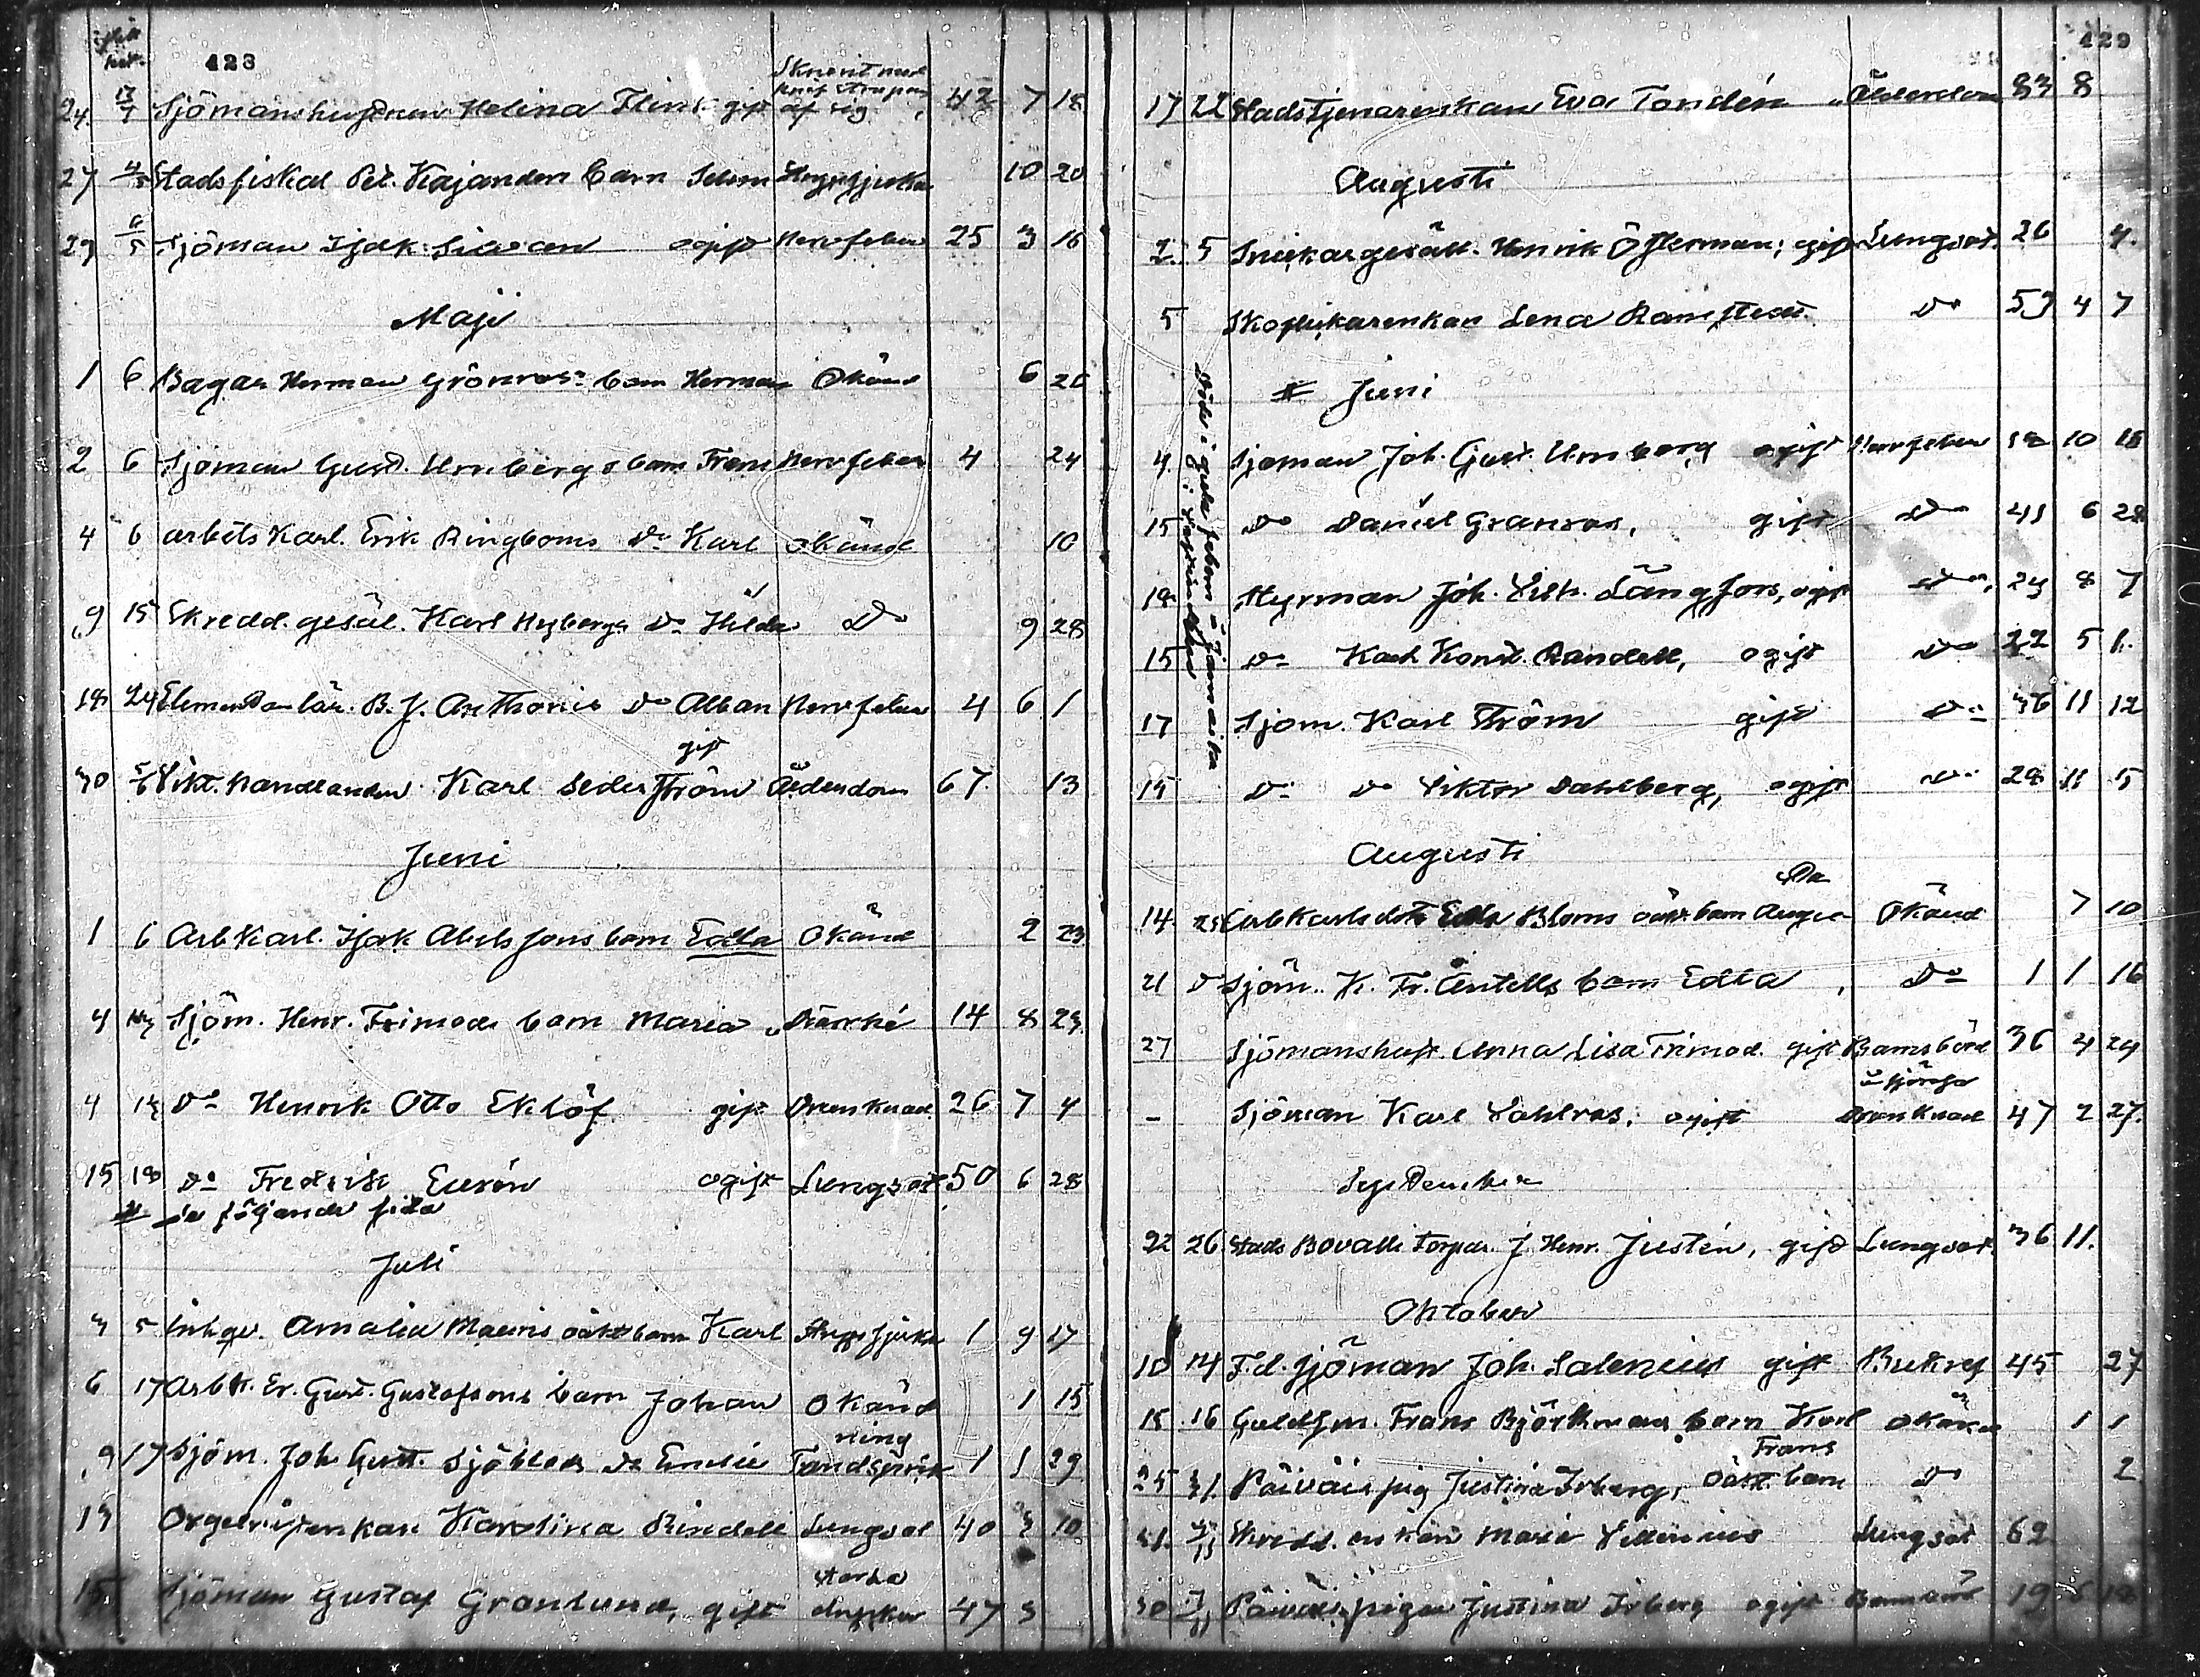 423
Skurit med
24. 13/4 Sjömanshustrun Helena Flink gift af sig 42 7 18
27 4/5 Stadsfiskal Pet. Kajanders barn Selim 10 20
29 6/5 Sjöman Isak ogift Nervfeber 25 3 16
Maji
1 6 Bagar Herman Grönroos barn Herman Okänd 6 26
2 6 Sjöman Gust. Urnbergs barn Frans Nervfeber 4 24
4 6 arbets Karl. Erik Ringboms Do Karl okänd 10
9 15 Skredd. gesäl. Karl Nybergs Do Hilda Do 9 28
18 24 Elementar lär. B. J. Anthonis Do Alban Nervfeber 4 6 1
gift
30 5/6 Vikt. handlanden Karl Sederström Ålderdom 67. 13
Juni
1 6 Arb Karl. Isak Abelssons barn Edla Okänd 2 23
4 Sjöm. Henr. Trimods barn Maria Diarrhé 14 8 23
4 14 Do Henrik Otto Eklöf gift Drunknad 26 7 4
15 18 Do Fredrik Eurén ogift Lungsot 50 6 28
# se följande sida
Juli
3 5 Inhys. Amalia Mauris oäkt barn Karl 1 9 17
6 17 Arb K. Er. Gust. Gustafssons barn Johan Okänd 1 15
ning
9 17 Sjöm. Joh. Gust. Sjöbloms Do Emelie Tandsprick 1 1 29
13 Karolina Rindell Lungsot 40 3 10
starka
15 Sjöman Gustaf Granlund, gift drycker 47 3
429
17 22 Stadstjenarenkan Eva Tondén Ålderdom 83 8
Augusti
2. 5 Snickargesäll. Henrik Österman, gift Lungsot. 26 4.
5 Skoflickarenkan Lena Ramstedt Do 53 4 7
# Juni
Döde i gula febern å Jamaika
4. Sjöman Joh. Gust. Urnberg ogift Nervfeber 18 10 18
15 Do Daniel Granroos, gift Do 41 6 28
18 Styrman Joh. Vilh. Långfors, ogift Do 23 8 7
15 Do Karl Konst. Randell, ogift Do 22 5 1.
17 Sjöm. Karl Ström gift Do 36 11 12
15 Do Do Viktor Dahlberg, ogift Do 28 11 5
Augusti
14. 25 Arb Karls dotr Edla Bloms oäkt barn Okänd 7 10
21 Do Sjöm. K. Fr. Antells barn Edla, Do 1 1 16
27 Sjömanshust. Anna Lisa Trimod. gift Barnsbörd 36 4 24
å sjöresa
- Sjöman Karl Vahlroos, ogift Drunknad 47 2 27.
September
22 26 Stads Bovalls Torpar. J. Henr. Justén, gift Lungsot. 36 11.
Oktober
10 14 F.d. Sjöman Joh. Salenius gift 45 27
15 16 Guldsm. Frans Björkmans barn Karl okänd 1 1
Frans
25 31. Päiväis pig Justina Irberg, oäkt barn Do 2
31. 4/11 Skredd. enkan Maria Lungsot 62
30 7/11 Päiväis pigan Justina Irberg ogift Barnsbörd 19 6 18